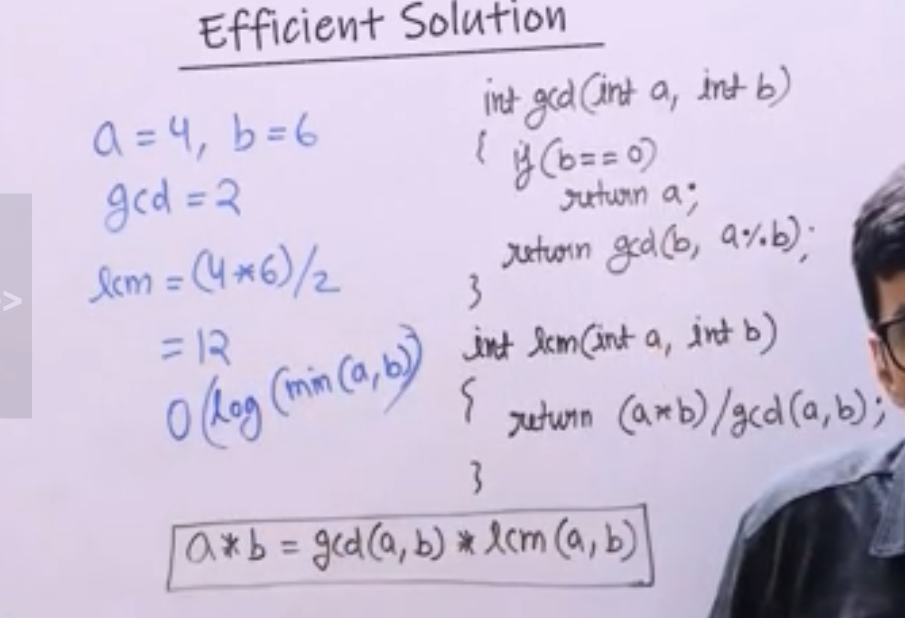 Efficient Solution
a = 4, b = 6
gcd = 2
lcm = (4*6)/2
= 12
O(log(min(a,b))
int gcd(int a, int b)
{ if(b==0)
return a;
return gcd(b, a%b);
}
int lcm(int a, int b)
{
return (a*b)/gcd(a,b);
}
a*b = gcd(a,b) * lcm(a,b)